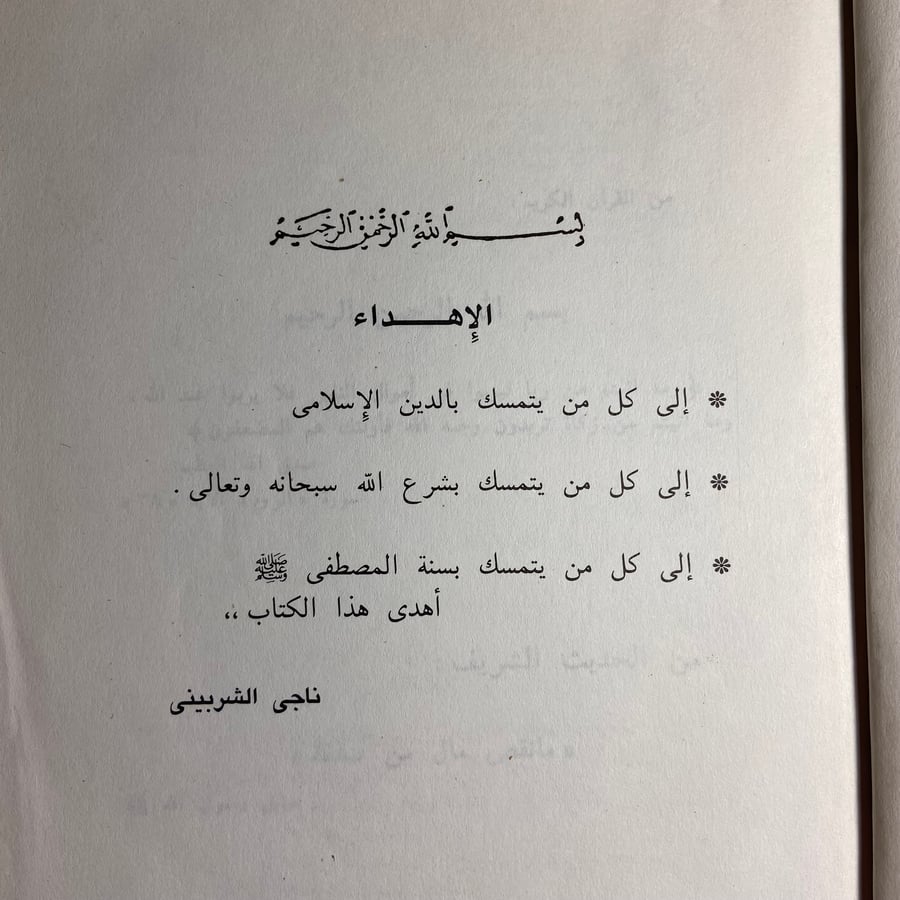 بِسْمِ اللَّهِ الرَّحْمَٰنِ الرَّحِيمِ
الإهــداء
❊ إلى كل من يتمسك بالدين الإِسلامى
❊ إلى كل من يتمسك بشرع الله سبحانه وتعالى .
❊ إلى كل من يتمسك بسنة المصطفى ﷺ
أهدى هذا الكتاب ،،
ناجى الشربينى